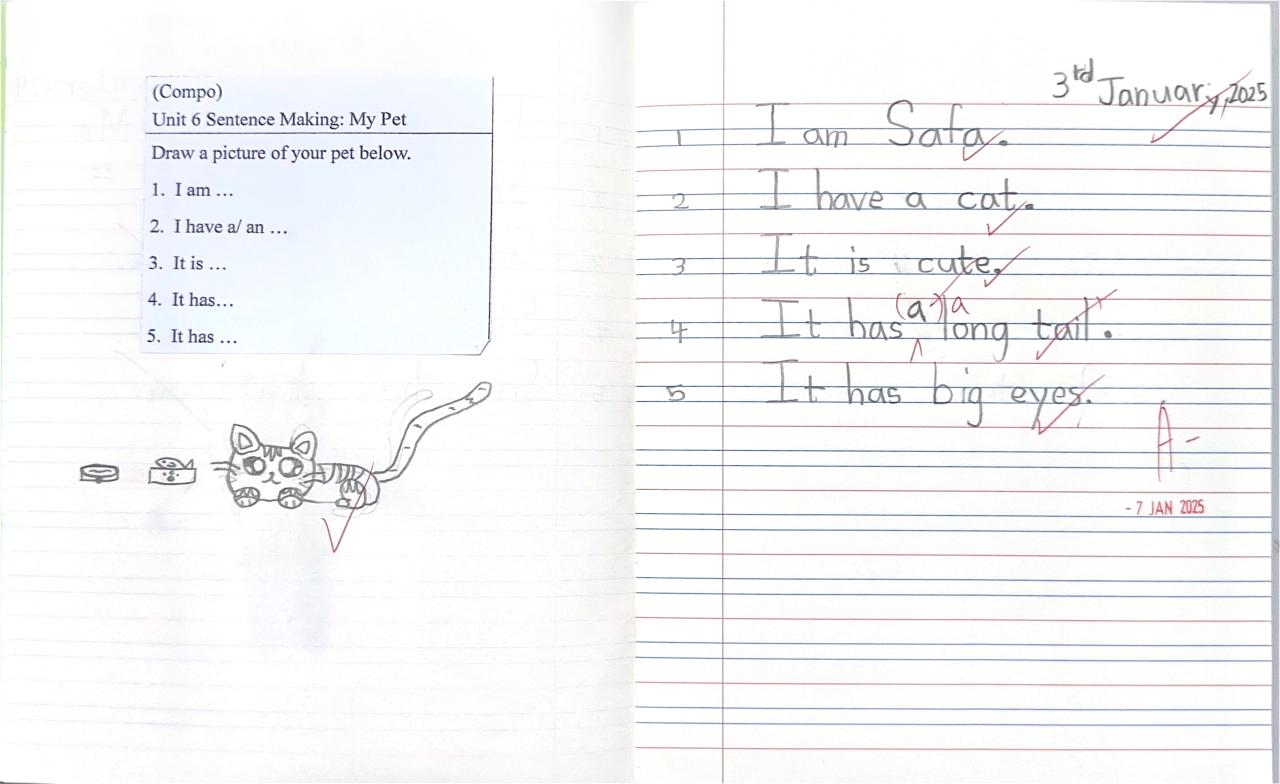 (Compo)
Unit 6 Sentence Making: My Pet
Draw a picture of your pet below.
1. I am ...
2. I have a/ an ...
3. It is ...
4. It has...
5. It has ...
3rd January, 2025
1 I am Safa.
2 I have a cat.
3 It is cute.
(a) a
4 It has long tail.
5 It has big eyes.
A-
- 7 JAN 2025